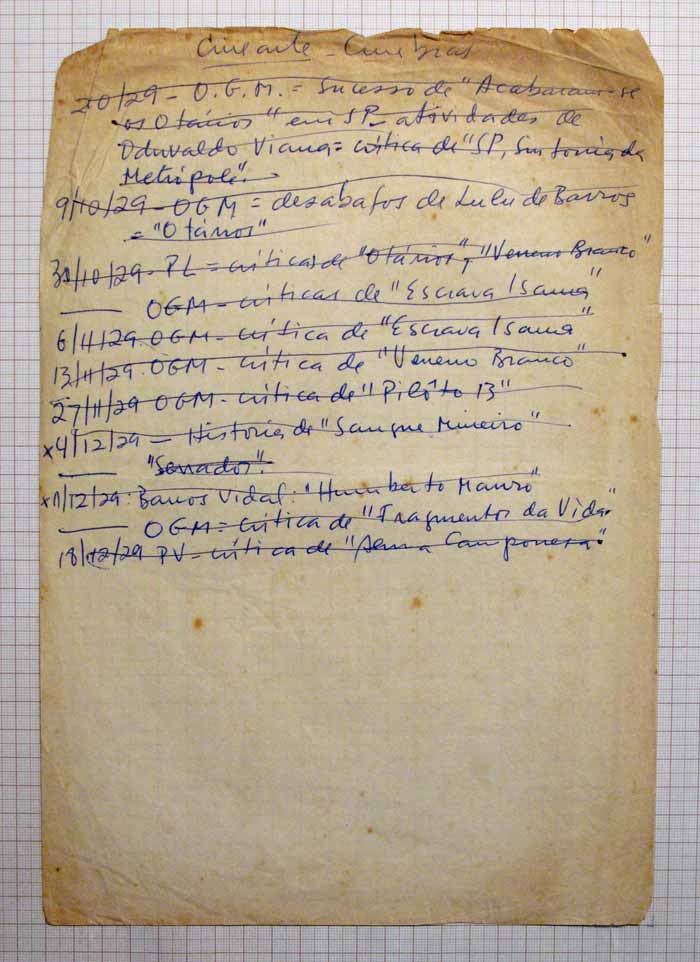 Cinearte - Cinebras
2/10/29 - O.G.M. = Sucesso de "Acabaram-se
os Otários" em SP - atividades de
Oduvaldo Viana = crítica de "SP, Sinfonia da
Metrópole".
9/10/29 - OGM = desabafos de Lulu de Barros
= "Otários"
30/10/29 - PL = críticas de "Otários", "Veneno Branco"
OGM - críticas de "Escrava Isaura"
6/11/29. OGM - crítica de "Escrava Isaura"
13/11/29. OGM - crítica de "Veneno Branco"
27/11/29 OGM - crítica de "Pilôto 13"
x 4/12/29 - Historia de "Sangue Mineiro"
"Senador".
x 11/12/29: Barros Vidal: "Humberto Mauro"
OGM = crítica de "Fragmentos da Vida"
18/12/29 PV = crítica de "Alma Camponesa".